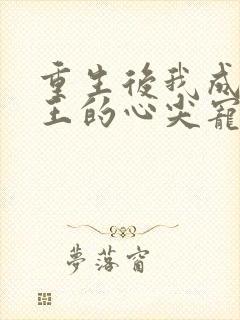 重生後我成
王的心尖寵
夢落窗